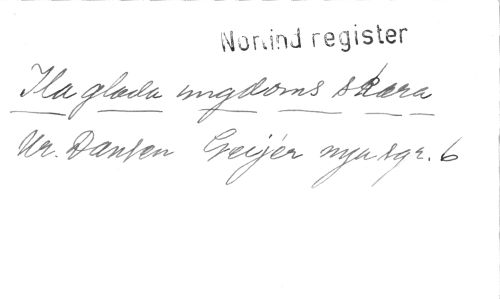 Norlind register
Ila glada ungdoms skara
Ur. Dansen Geijer nya sgr. 6